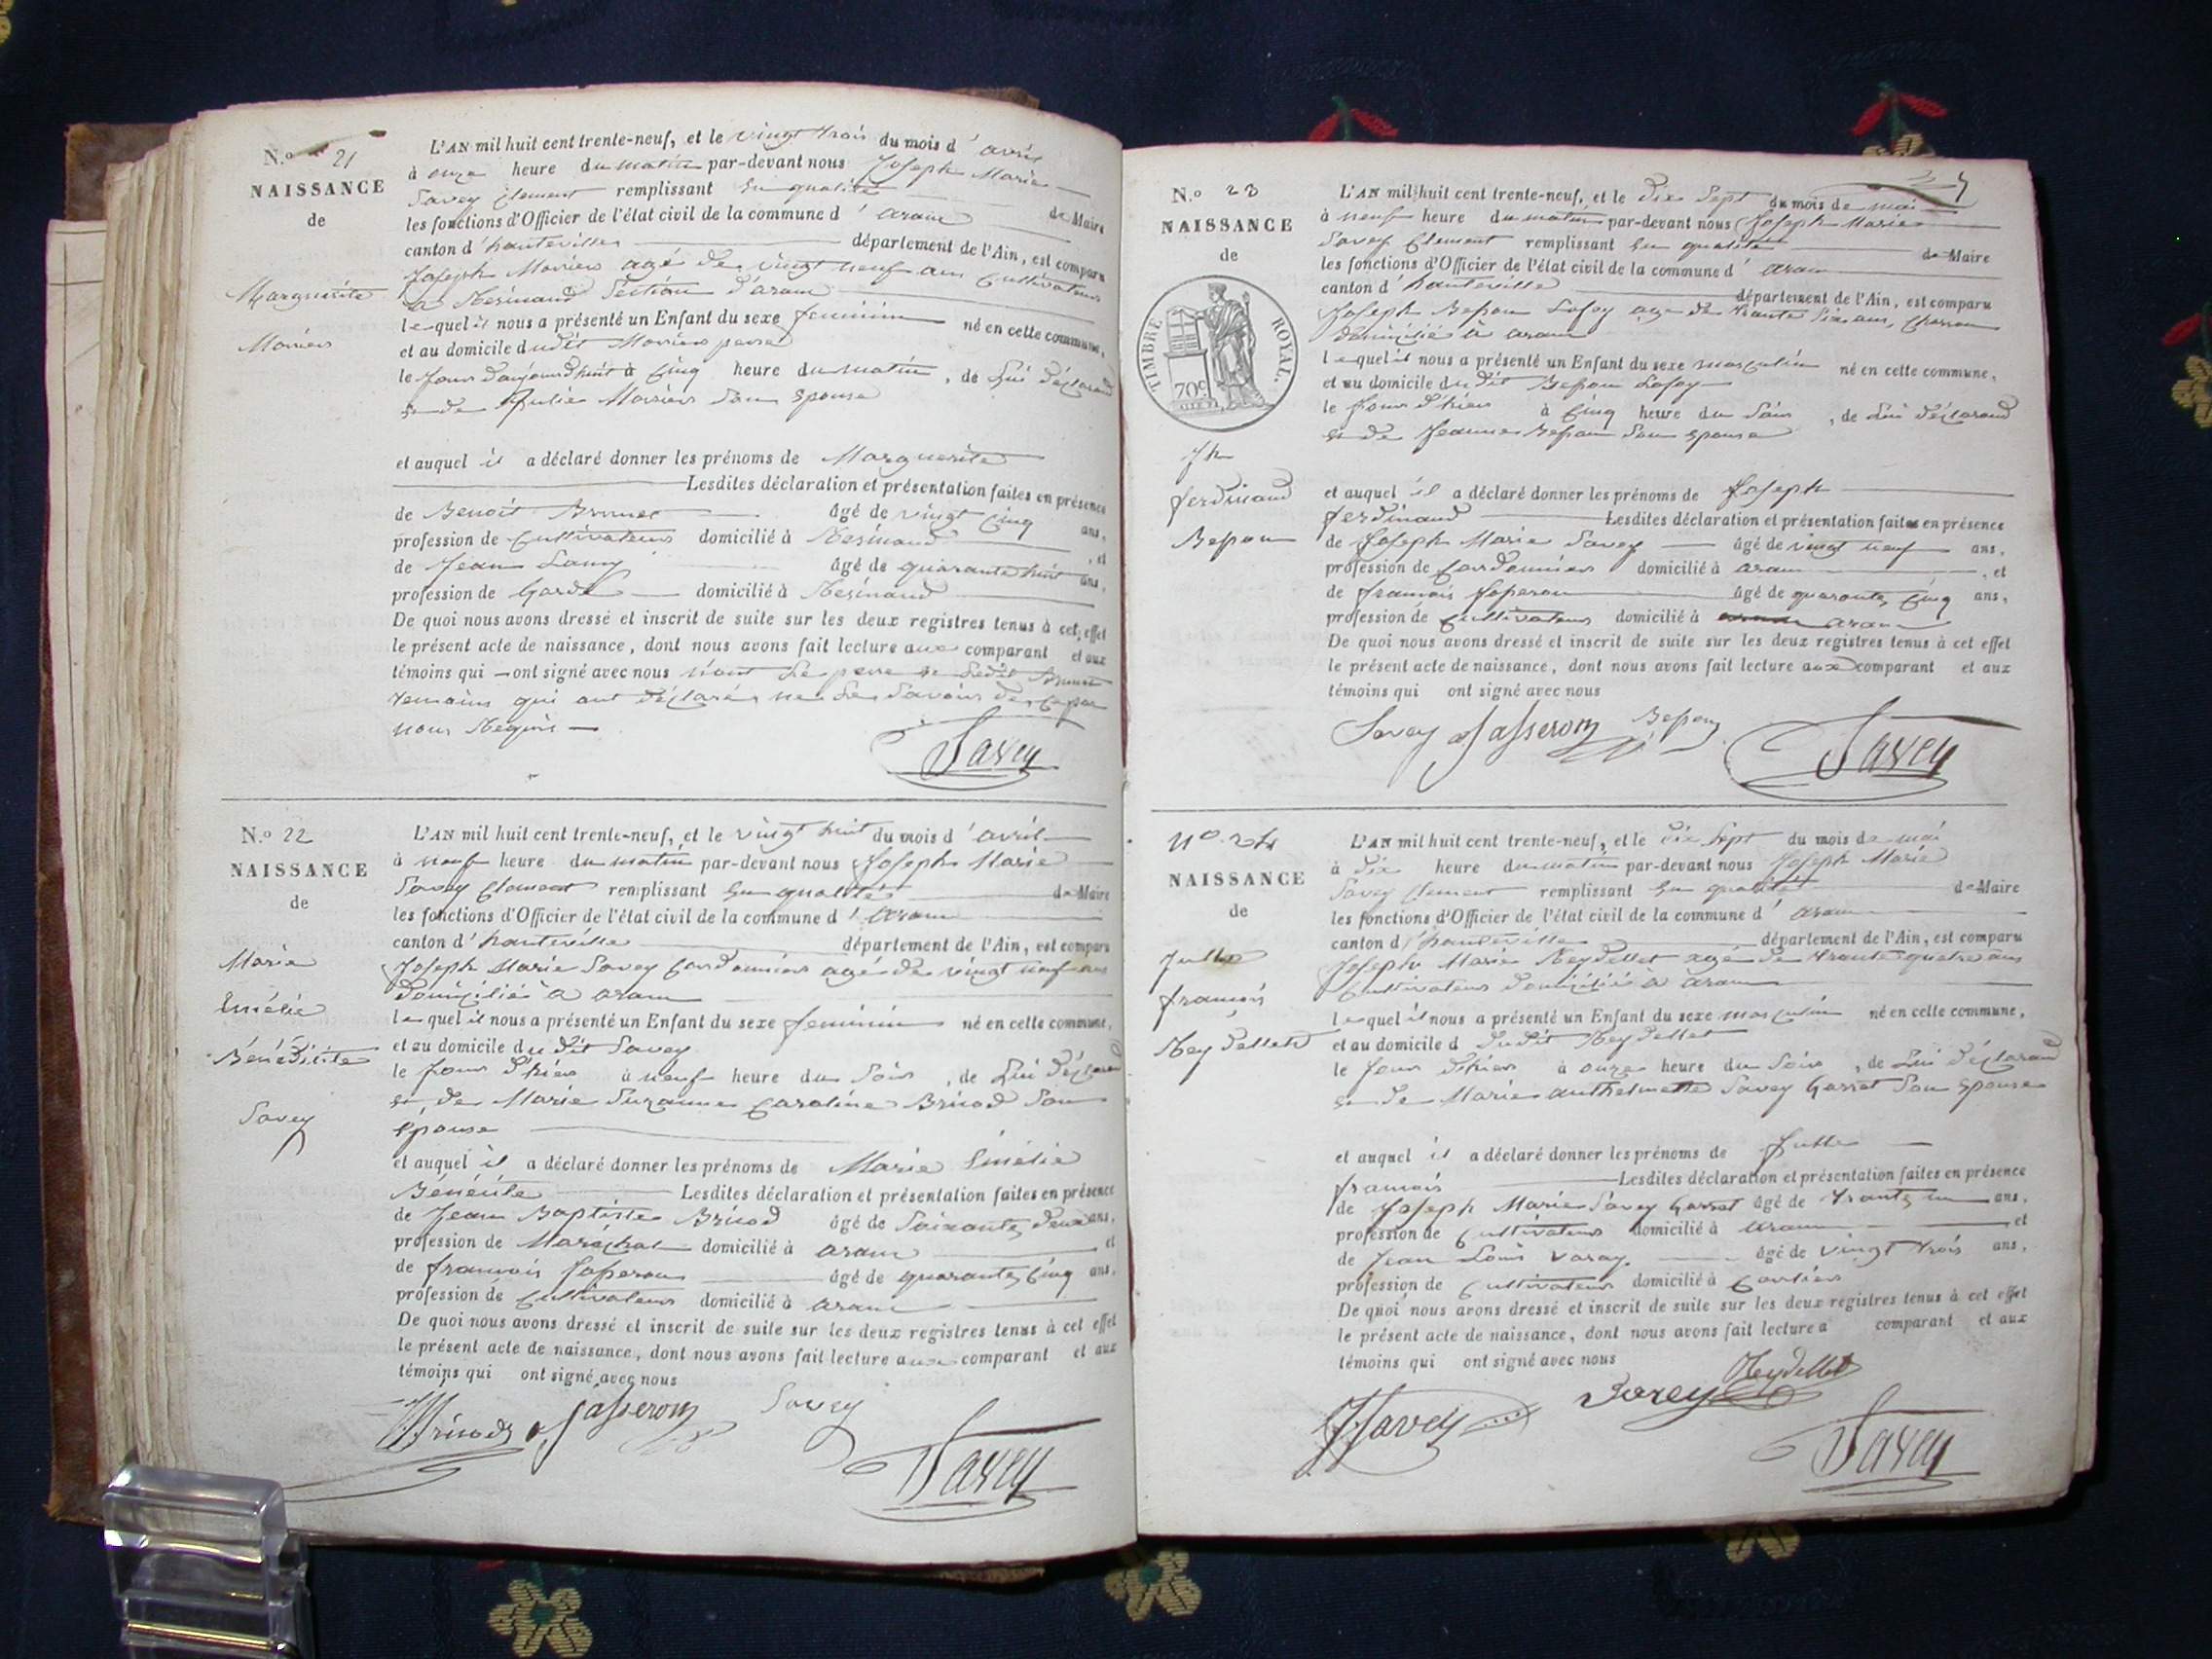 N.o 21
NAISSANCE
de
Marguerite
L'AN mil huit cent trente-neuf, et le vingt trois du mois d'avril
à onze heure du matin par-devant nous Joseph Marie
Savey Clement remplissant en qualité de Maire
les fonctions d'Officier de l'état civil de la commune d'aranc
canton d'hauteville département de l'Ain, est comparu
Joseph agé de vingt neuf ans Cultivateur
a Résinand Section d'aranc
lequel il nous a présenté un Enfant du sexe feminin né en cette commune,
et au domicile dudit
le Jour d'aujourd'huit à Cinq heure du matin, de Lui déclarand
et de Julie Son Epouse
et auquel il a déclaré donner les prénoms de Marguerite
Lesdites déclaration et présentation faites en présence
de Benoit Brunet âgé de vingt Cinq ans,
profession de Cultivateur domicilié à Résinand, et
de Jean âgé de quarante huit ans,
profession de Garde domicilié à Résinand
De quoi nous avons dressé et inscrit de suite sur les deux registres tenus à cet effet
le présent acte de naissance, dont nous avons fait lecture aux comparant et aux
témoins qui ont signé avec nous non le pere et Ledit Brunet
temoins qui ont déclaré ne le Savoir de Ce par
nous Requis
Savey
N.o 22
NAISSANCE
de
Marie
Emélie
Bénédite
Savey
L'AN mil huit cent trente-neuf, et le vingt huit du mois d'avril
à neuf heure du matin par-devant nous Joseph Marie
Savey Clement remplissant en qualité de Maire
les fonctions d'Officier de l'état civil de la commune d'aranc
canton d'hauteville département de l'Ain, est comparu
Joseph Marie Savey Cordonnier agé de vingt neuf ans
domicilié a aranc
lequel il nous a présenté un Enfant du sexe feminin né en cette commune,
et au domicile dudit Savey
le Jour d'hier à neuf heure du Soir, de Lui déclarand
et de Marie Suzanne Caroline Bricod Son
Epouse
et auquel il a déclaré donner les prénoms de Marie Emélie
Lesdites déclaration et présentation faites en présence
de Jean Baptiste Bricod âgé de Soixante deux ans,
profession de Maréchal domicilié à aranc et
de francois Jasseron âgé de quarante Cinq ans,
profession de Cultivateur domicilié à aranc
De quoi nous avons dressé et inscrit de suite sur les deux registres tenus à cet effet
le présent acte de naissance, dont nous avons fait lecture aux comparant et aux
témoins qui ont signé avec nous
Bricod Jasseron Savey
Savey
N.o 23
NAISSANCE
de
TIMBRE ROYAL.
70c
Jh
ferdinand
Besson
L'AN mil huit cent trente-neuf, et le dix Sept du mois de mai
à neuf heure du matin par-devant nous Joseph Marie
Savey Clement remplissant en qualité de Maire
les fonctions d'Officier de l'état civil de la commune d'aranc
canton d'hauteville département de l'Ain, est comparu
Joseph Besson agé de trante Six ans, Charron
domicilié à aranc
lequel il nous a présenté un Enfant du sexe masculin né en cette commune,
et au domicile dudit Besson
le Jour d'hier à Cinq heure du Soir, de Lui déclarand
et de Jeanne Besson Son Epouse
et auquel il a déclaré donner les prénoms de Joseph
ferdinand Lesdites déclaration et présentation faites en présence
de Joseph Marie Savey âgé de vingt neuf ans,
profession de Cordonnier domicilié à aranc, et
de francois Jasseron âgé de quarante Cinq ans,
profession de Cultivateur domicilié à aranc
De quoi nous avons dressé et inscrit de suite sur les deux registres tenus à cet effet
le présent acte de naissance, dont nous avons fait lecture aux comparant et aux
témoins qui ont signé avec nous
Savey Jasseron Besson
Savey
No 24
NAISSANCE
de
francois
Reydellet
L'AN mil huit cent trente-neuf, et le dix Sept du mois de mai
à dix heure du matin par-devant nous Joseph Marie
Savey Clement remplissant en qualité de Maire
les fonctions d'Officier de l'état civil de la commune d'aranc
canton d'hauteville département de l'Ain, est comparu
Joseph Marie Reydellet agé de trante quatre ans
Cultivateur domicilié à aranc
lequel il nous a présenté un Enfant du sexe masculin né en cette commune,
et au domicile d dudit Reydellet
le Jour d'hier à onze heure du Soir, de Lui déclarand
et de Marie anthelmette Savey Garret Son Epouse
et auquel il a déclaré donner les prénoms de
francois Lesdites déclaration et présentation faites en présence
de Joseph Marie Savey Garret âgé de trante un ans,
profession de Cultivateur domicilié à aranc et
de Jean Louis Varay âgé de vingt trois ans,
profession de Cultivateur domicilié à Corlier
De quoi nous avons dressé et inscrit de suite sur les deux registres tenus à cet effet
le présent acte de naissance, dont nous avons fait lecture a comparant et aux
témoins qui ont signé avec nous
Reydellet
Savey
Savey